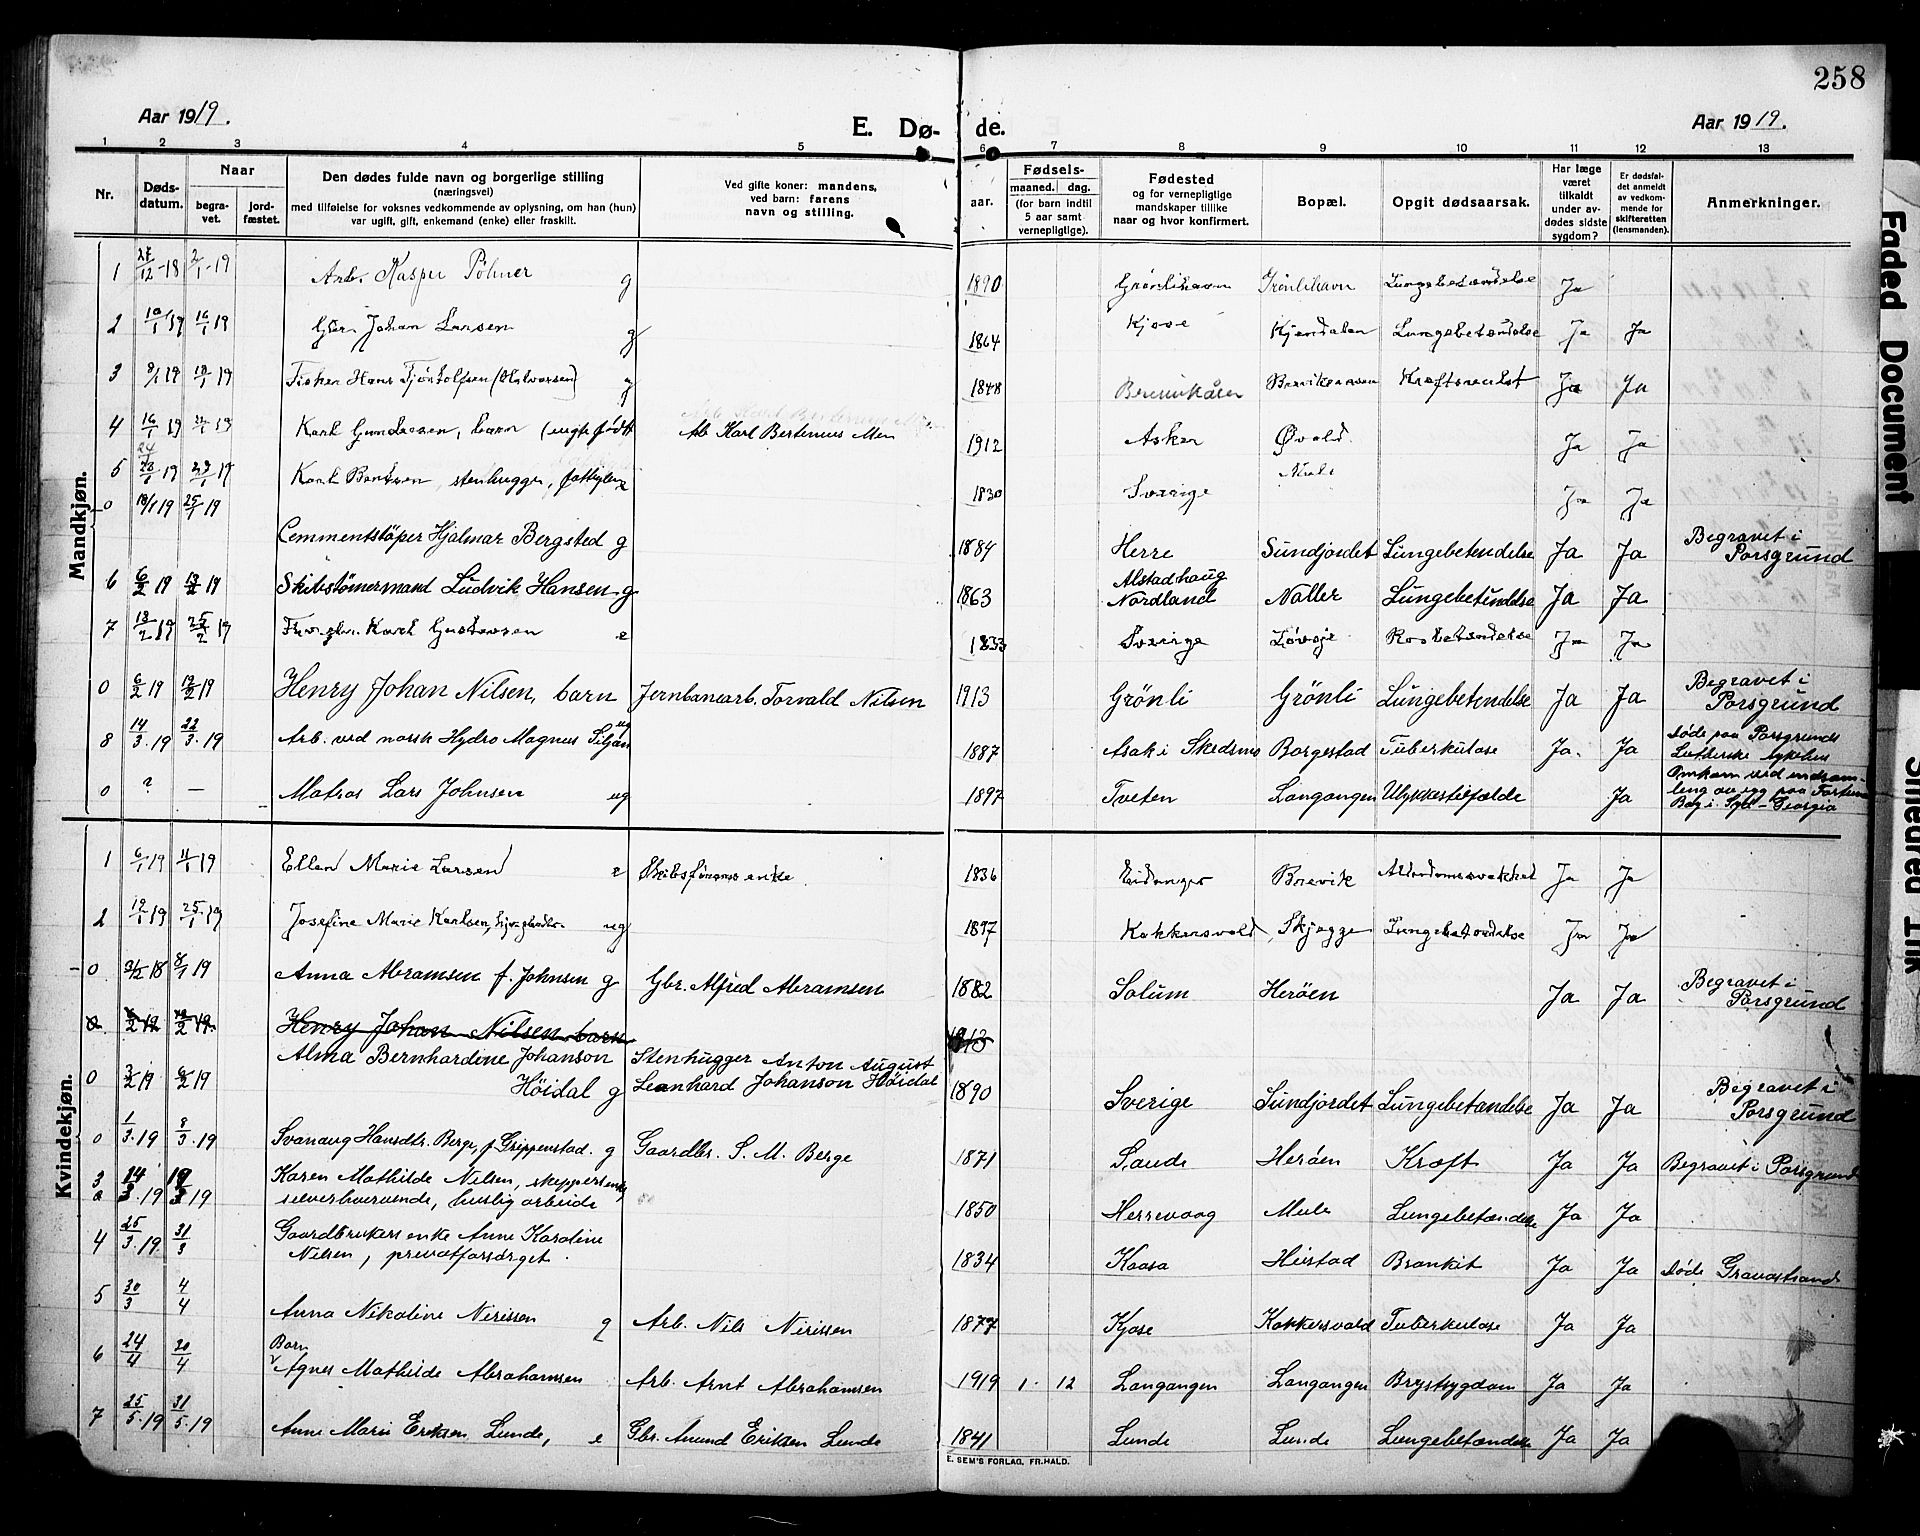 258
Aar 1919.
E. Dø- de.
Aar 1919.
1 2 3 4 5 6 7 8 9 10 11 12 13
Nr. Døds-datum. Naar begra-vet. jord-fæstet. Den dødes fulde navn og borgerlige stilling (næringsvei) med tilføielse for voksnes vedkommende av oplysning, om han (hun) var ugift, gift, enkemand (enke) eller fraskilt. Ved gifte koner: mandens, ved barn: farens navn og stilling. aar. Fødsels- maaned. dag. (for barn indtil 5 aar samt vernepligtige). Fødested og for vernepligtige mandskaper tillike naar og hvor konfirmert. Bopæl. Opgit dødsaarsak. Har læge været tilkaldt under av-dødes sidste sygdom? Er dødsfal-det anmeldt av vedkom-mende for skifteretten (lensmanden). Anmerkninger.
Mandkjøn.
1 12-18 2/1-19 Arb. Kasper Pöhner g 1890 Grönlihavn Grönlihavn Lungebetændelse Ja
2 10/1 19 16/1 19 Gbr. Johan Larsen g 1864 Kjose Kjendalen Lungebetændelse Ja Ja
3 8/1 19 18/1 19 Fisker Hans Tjöstolfsen (Halvorsen) g 1848 Brevikåsen Kræft Ja Ja
4 16/1 19 Karl Gundersen, barn Arb Karl Bertinius Moen 1912 Asker Øvald Ja Ja
5 23/1 19 29/1 19 Karl Berntsen, stenhugger, 1830 Sverige Mule Ja Ja
0 18/1 19 25/1 19 Cementstöper Hjalmar Bergsted g 1884 Herre Sundjordet Lungebetendelse Ja Ja Begravet i Porsgrund
6 6/2 19 13/2 19 Skibstömermand Ludvik Hansen g 1863 Alstadhaug Nordland Naller Lungebetendelse Ja Ja
7 13/2 19 25/2 19 Karl Gustavsen e 1833 Sverige Lövöje Ja Ja
0 6/2 19 12/2 19 Henry Johan Nilsen, barn Jernbanearb. Torvald Nilsen 1913 Grönli Grönli Lungebetendelse Ja Ja Begravet i Porsgrund
8 14/3.19 22/3.19 Arb. ved norsk Hydro Magnus Siljan ug 1887 Asak i Skedsmo Borgestad Tuberkulose Ja. Ja döde paa Porsgrunds Lutherske sykehus
0 ? — Matros Lars Johnsen ug 1897 Tveten Langangen Ulykkestilfælde Ja Omkom ved indsam-ling av egg paa Fortuna Bay i Syd-Georgia
Kvindekjøn.
1 6/1 19 11/1 19 Ellen Marie Larsen e Skibsförerens enke. 1836 Eidanger Brevik Alderdomssvakhet Ja Ja
2 19/1 19 25/1.19 Josefine Marie Karlsen, ug 1897 Kokkersvold, Skjegge Lungebetændelse Ja Ja
0 2/12 18 8/1 19 Anna Abramsen f. Johnsen g Gbr. Alfred Abramsen 1882 Solum Heröen Ja Ja Begravet i Porsgrund
0. 6/2 19 12/2 19. Henry Johan Nilsen barn 1913
0 3/2 19 6/2 19 Alma Bernhardine Johanson Höidal g Stenhugger Anton August Leonhard Johanson Höidal 1890 Sverige Sundjordet Lungebetændelse Ja Ja Begravet i Porsgrund
0 1/3.19 8/3.19 Svanaug Hansdtr. Berge, f. Grippenstad. g Gaardbr. S. M. Berge 1871 Sande Heröen Kræft Ja Ja Begravet i Porsgrund
3 14/3.19 19/3 19 Karen Mathilde Nilsen, skeppersenke, selverhvervende, huslig arbeide 1850 Herrevaag Mule Lungebetændelse Ja Ja
4 25/3.19. 31/3 Gaardbrukers enke Anne Karoline Nilsen, privatforsörget. 1834 Kaasa Heistad Bronkit Ja Ja döde Gravastrand
5 30/3 4/4 Anna Nikoline Nirissen g Arb. Nils Nirissen 1877 Kjose Kokkersvold Tuberkulose Ja Ja
6 24/4 30/4 Barn Agnes Mathilde Abrahamsen Arb. Arnt Abrahamsen 1919 1. 12 Langangen Langangen Brystsygdom Ja Ja
7 25/5.19 31/5.19 Anne Marie Eriksen Lunde, e Gbr. Amund Eriksen Lunde 1841 Lunde Lunde Lungebetændelse Ja Ja
E. SEM'S FORLAG, FR.HALD.
Faded Document
Smeared Ink